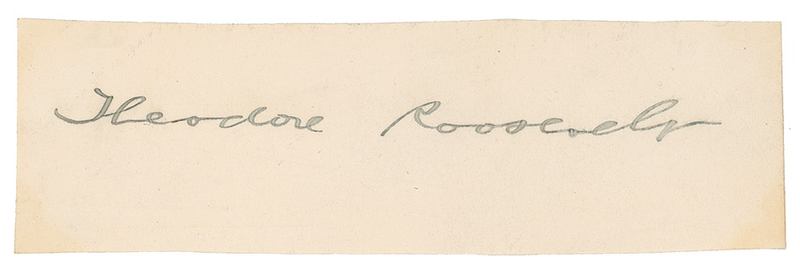 Theodore Roosevelt